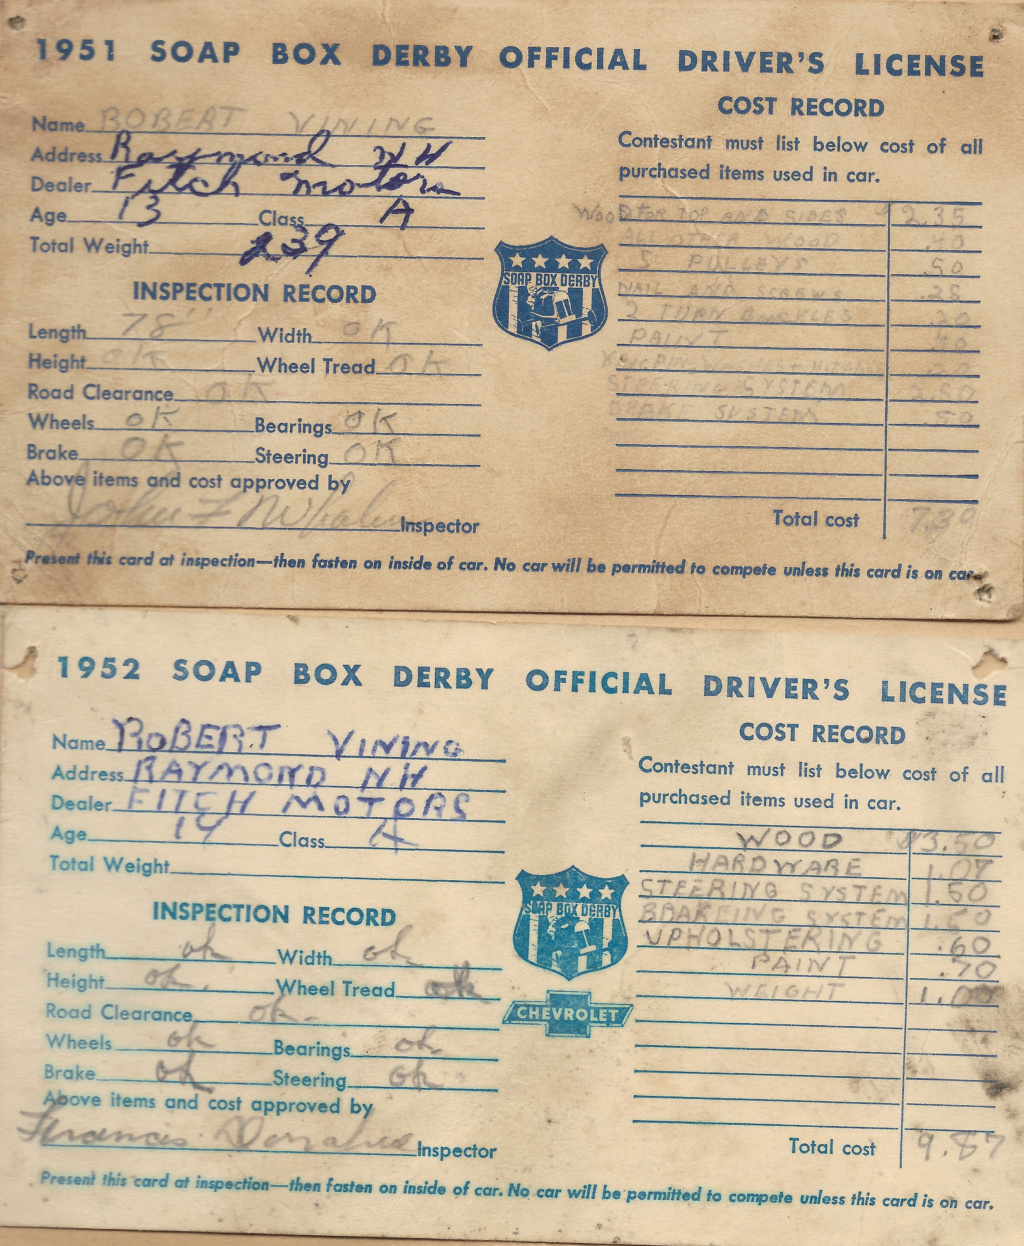 1951 SOAP BOX DERBY OFFICIAL DRIVER'S LICENSE
Name ROBERT VINING
Address Raymond NH
Dealer Fitch Motors
Age 13 Class A
Total Weight 239
INSPECTION RECORD
Length 78" Width OK
Height OK Wheel Tread OK
Road Clearance OK
Wheels OK Bearings OK
Brake OK Steering OK
Above items and cost approved by
John F Inspector
SOAP BOX DERBY
COST RECORD
Contestant must list below cost of all
purchased items used in car.
WOOD FOR TOP AND SIDES 2.35
ALL OTHER WOOD
5 PULLEYS .50
NAIL AND SCREWS .25
2 TURN BUCKLES
PAINT
STEERING SYSTEM
BRAKE SYSTEM .50
Total cost
Present this card at inspection—then fasten on inside of car. No car will be permitted to compete unless this card is on car.
1952 SOAP BOX DERBY OFFICIAL DRIVER'S LICENSE
Name ROBERT VINING
Address RAYMOND NH
Dealer FITCH MOTORS
Age 14 Class A
Total Weight
INSPECTION RECORD
Length ok Width ok
Height ok. Wheel Tread ok
Road Clearance ok-
Wheels ok Bearings ok
Brake ok Steering ok
Above items and cost approved by
Francis Donahue Inspector
SOAP BOX DERBY
CHEVROLET
COST RECORD
Contestant must list below cost of all
purchased items used in car.
WOOD $3.50
HARDWARE 1.07
STEERING SYSTEM 1.50
BRAKEING SYSTEM 1.50
UPHOLSTERING .60
PAINT .70
WEIGHT 1.00
Total cost 9.87
Present this card at inspection—then fasten on inside of car. No car will be permitted to compete unless this card is on car.